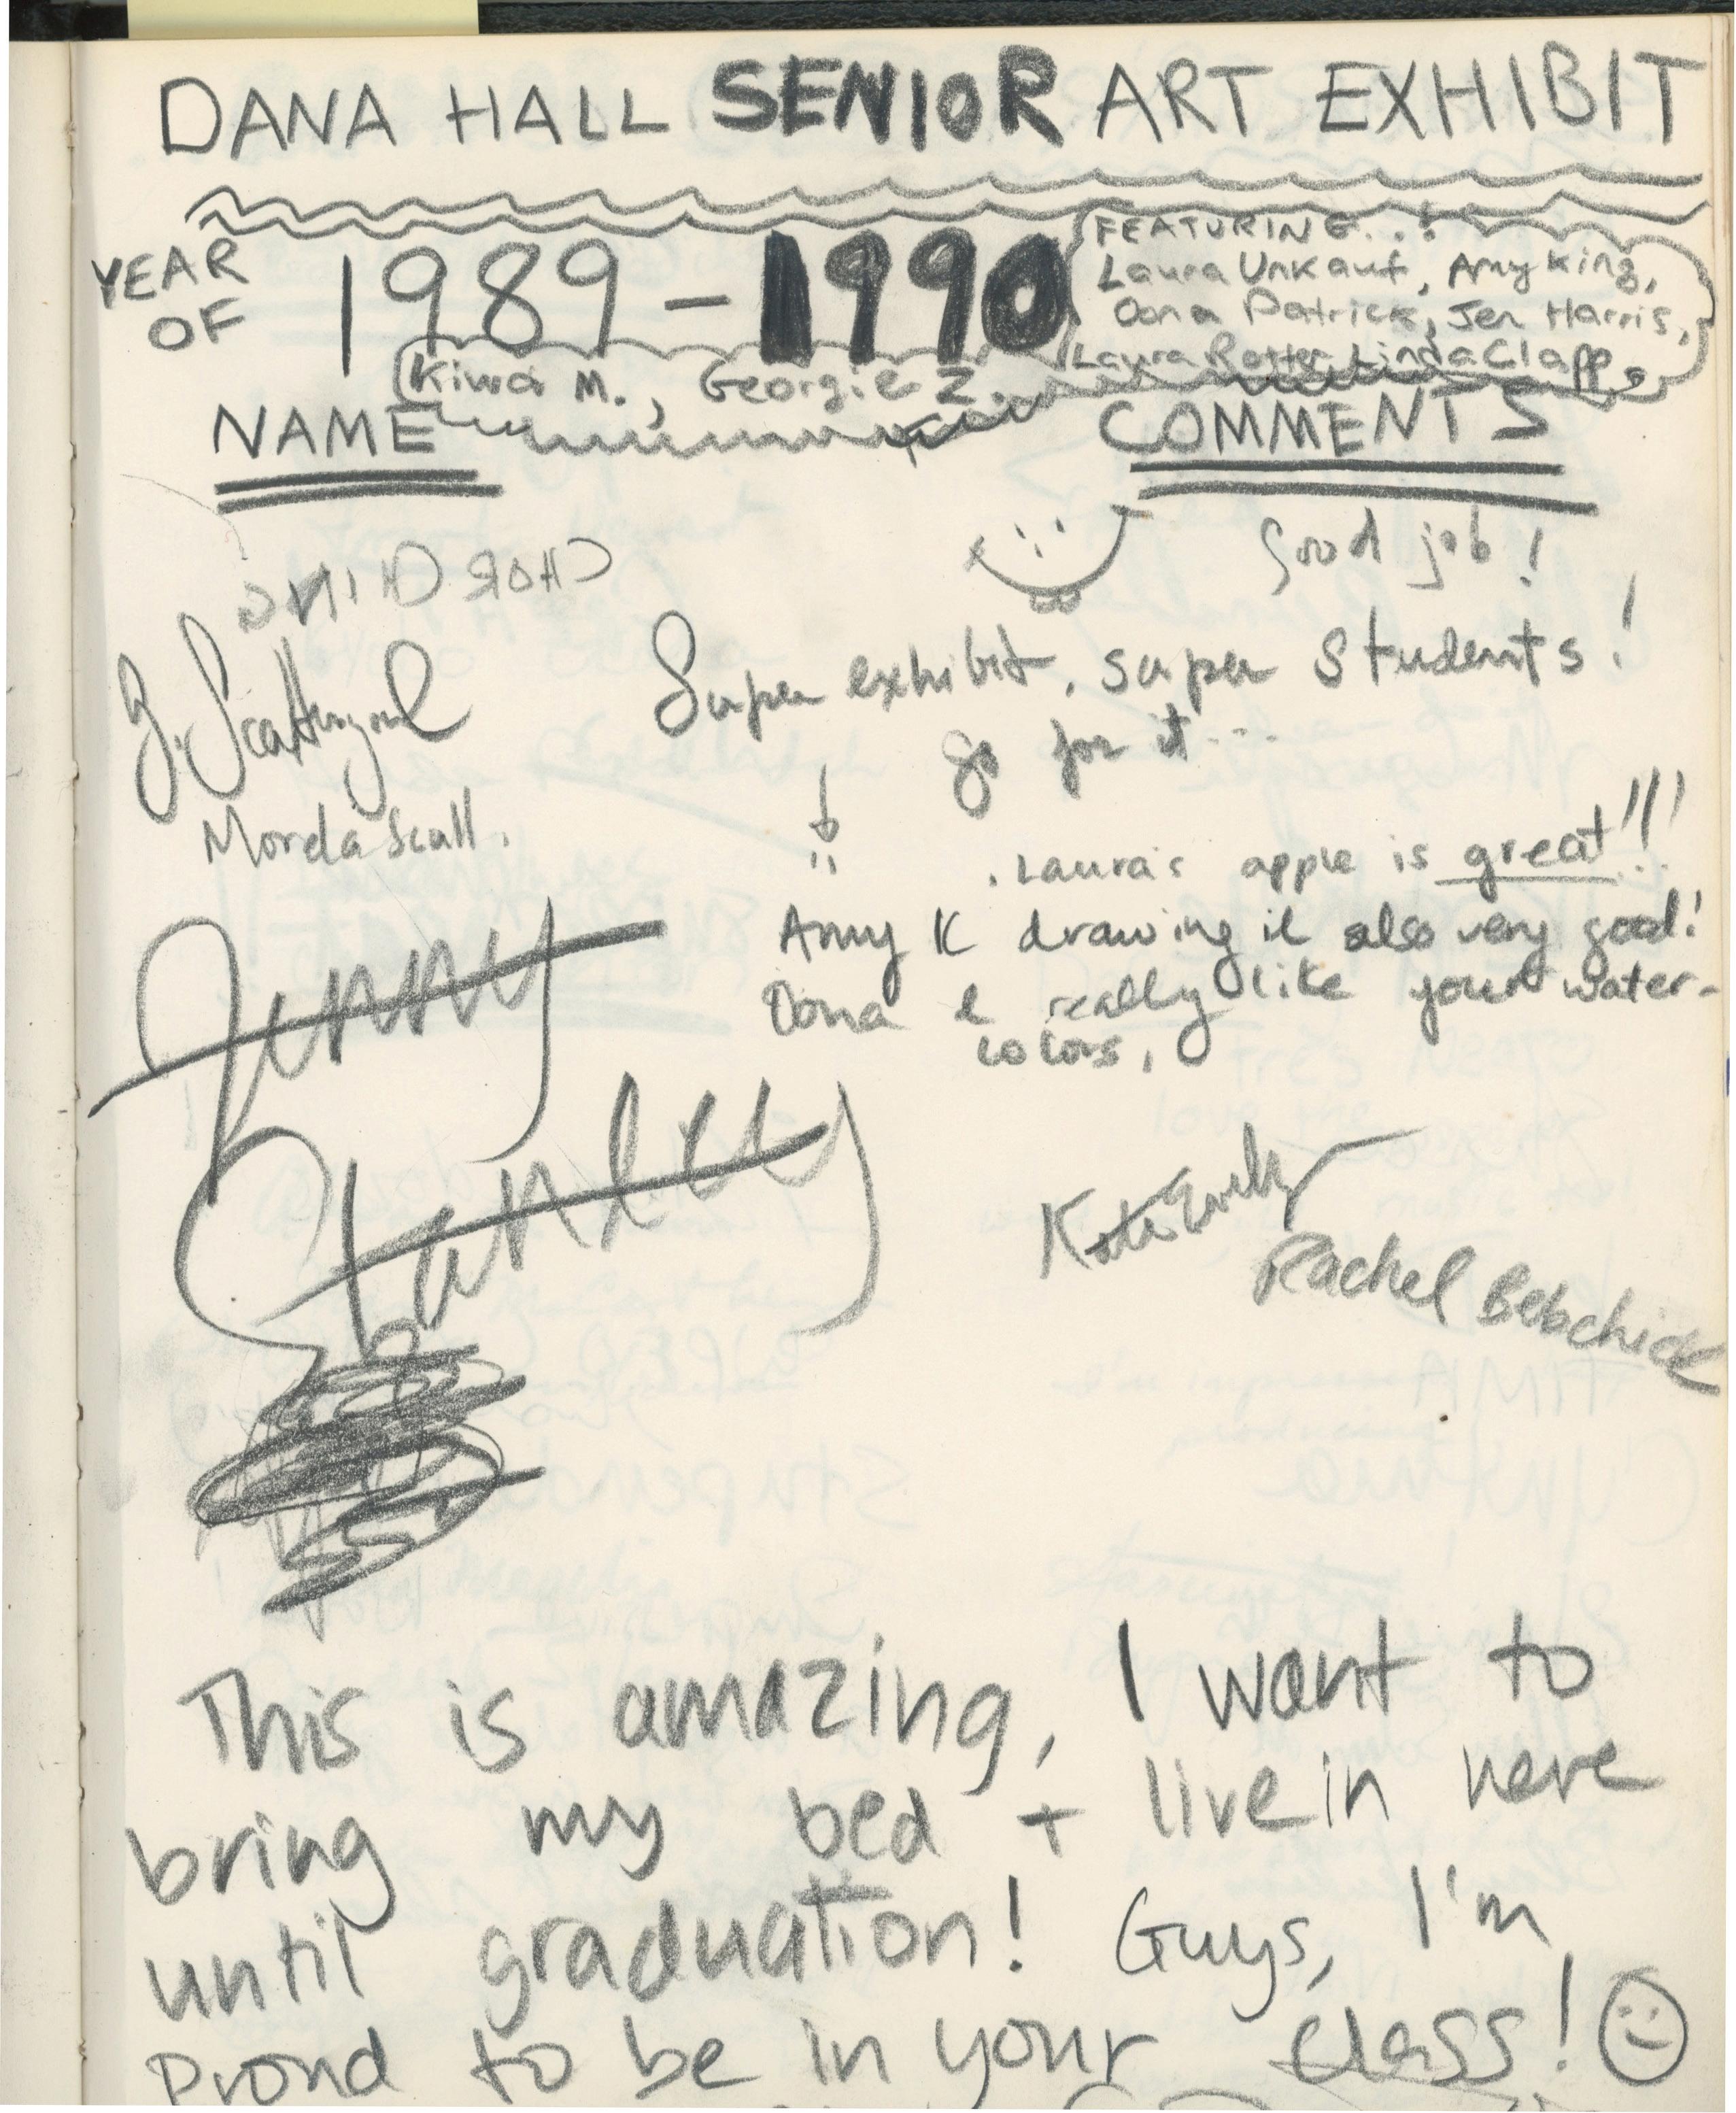 DANA HALL SENIOR ART EXHIBIT
YEAR OF 1989 - 1990
FEATURING...!
Laura Unkauf, Amy King,
Oona Patrick, Jen Harris,
Laura Rotter, Linda Clapp,
Kiwa M., Georgie Z.
NAME COMMENTS
Good job!
Super exhibit, super students!
go for it...
Laura's apple is great!!!
Amy K drawing is also very good!
Oona I really like your water-
colors,
Jenny
Stanley
Kate
Rachel
This is amazing, I want to
bring my bed + live in here
until graduation! Guys, I'm
Proud to be in your class!